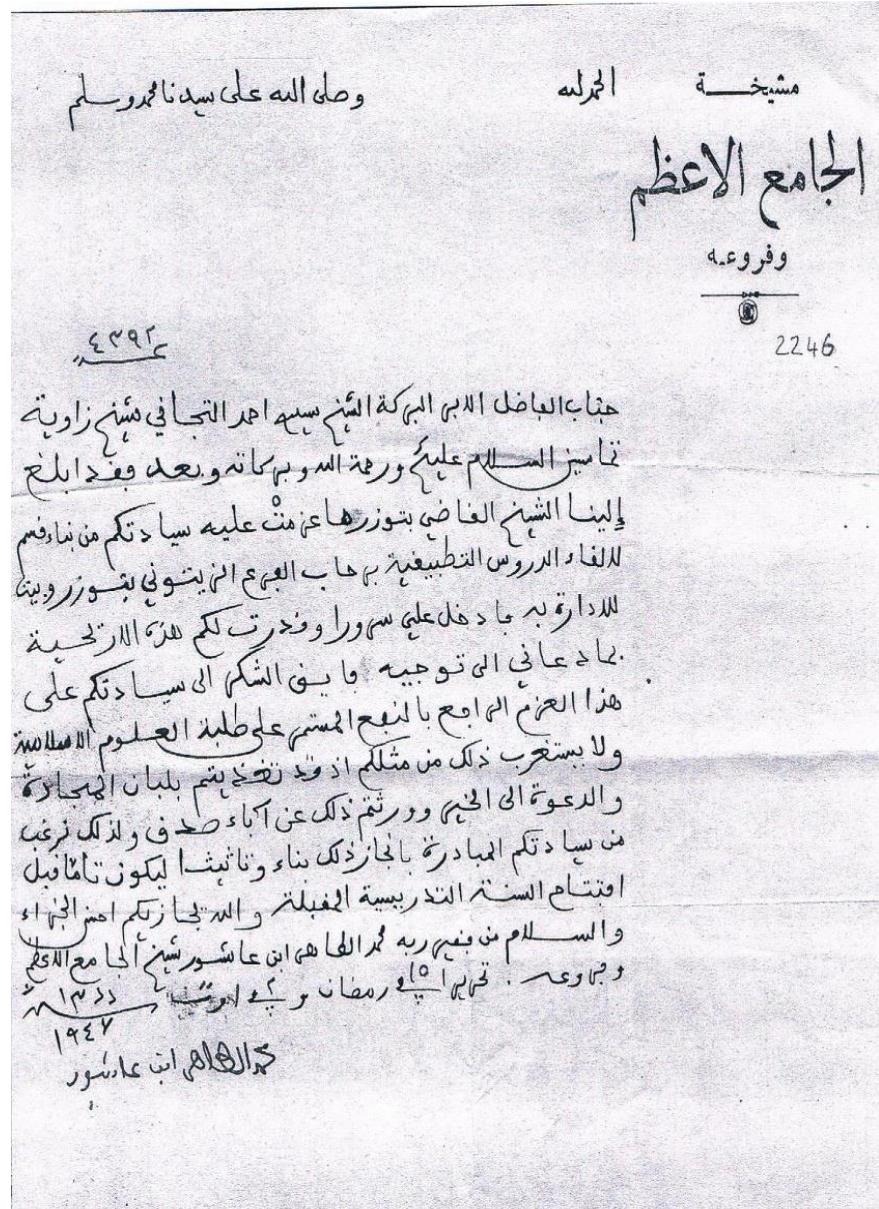 مشيخة الحمد لله وصلى الله على سيدنا محمد وسلم
الجامع الاعظم
وفروعه
2246
٤٣٩٢
جناب الفاضل الابر البركة الشيخ سيدي احمد التجاني شيخ زاوية
تماسين السلام عليكم ورحمة الله وبركاته وبعد فقد ابلغ
إلينا الشيخ القاضي بتوزر ما عزمتْ عليه سيادتكم من بناء قسم
لالقاء الدروس التطبيقية برحاب الفرع الزيتوني بتوزر وبيت
للادارة به مما دخل علي سرورا وقدرت لكم هذه الارتحية
بما دعاني الى توجيه فايق الشكر الى سيادتكم على
هذا العزم الراجع بالنفع المستمر على طلبة العلوم الاسلامية
ولا يستغرب ذلك من مثلكم اذ قد تغذيتم بلبان المجادة
والدعوة الى الخير وورثتم ذلك عن آباء صدق ولذلك نرغب
من سيادتكم المبادرة بانجاز ذلك بناء وتاثيثا ليكون تاما قبل
افتتاح السنة التدريسية المقبلة والله يجازيكم احسن الجزاء
والسلام من فقير ربه محمد الطاهر ابن عاشور شيخ الجامع الاعظم
وفروعه. تحريرا في ١٥ رمضان وفي ٢ اوت
١٩٤٧
محمد الطاهر ابن عاشور